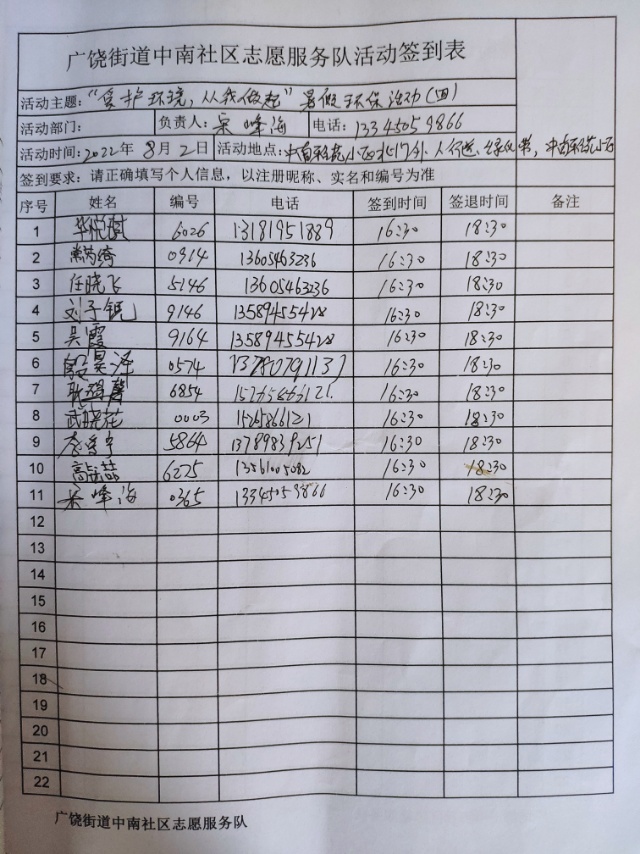 广饶街道中南社区志愿服务队活动签到表
活动主题："爱护环境,从我做起"暑假环保活动(四)
活动部门： 负责人：宋峰海 电话：13345059866
活动时间：2022年8月2日 活动地点：小区北门外、人行道、绿化带,
签到要求：请正确填写个人信息，以注册昵称、实名和编号为准
序号 姓名 编号 电话 签到时间 签退时间 备注
1 6026 13181951889 16:30 18:30
2 0914 13605463236 16:30 18:30
3 任晓飞 5146 13605463236 16:30 18:30
4 刘子锐 9146 13589455428 16:30 18:30
5 吴霞 9164 13589455428 16:30 18:30
6 0574 16:30 18:30
7 6854 16:30 18:30
8 武晓花 0003 16:30 18:30
9 5864 13789839251 16:30 18:30
10 6275 13561005082 16:30 18:30
11 宋峰海 0365 13345059866 16:30 18:30
12
13
14
15
16
17
18
19
20
21
22
广饶街道中南社区志愿服务队